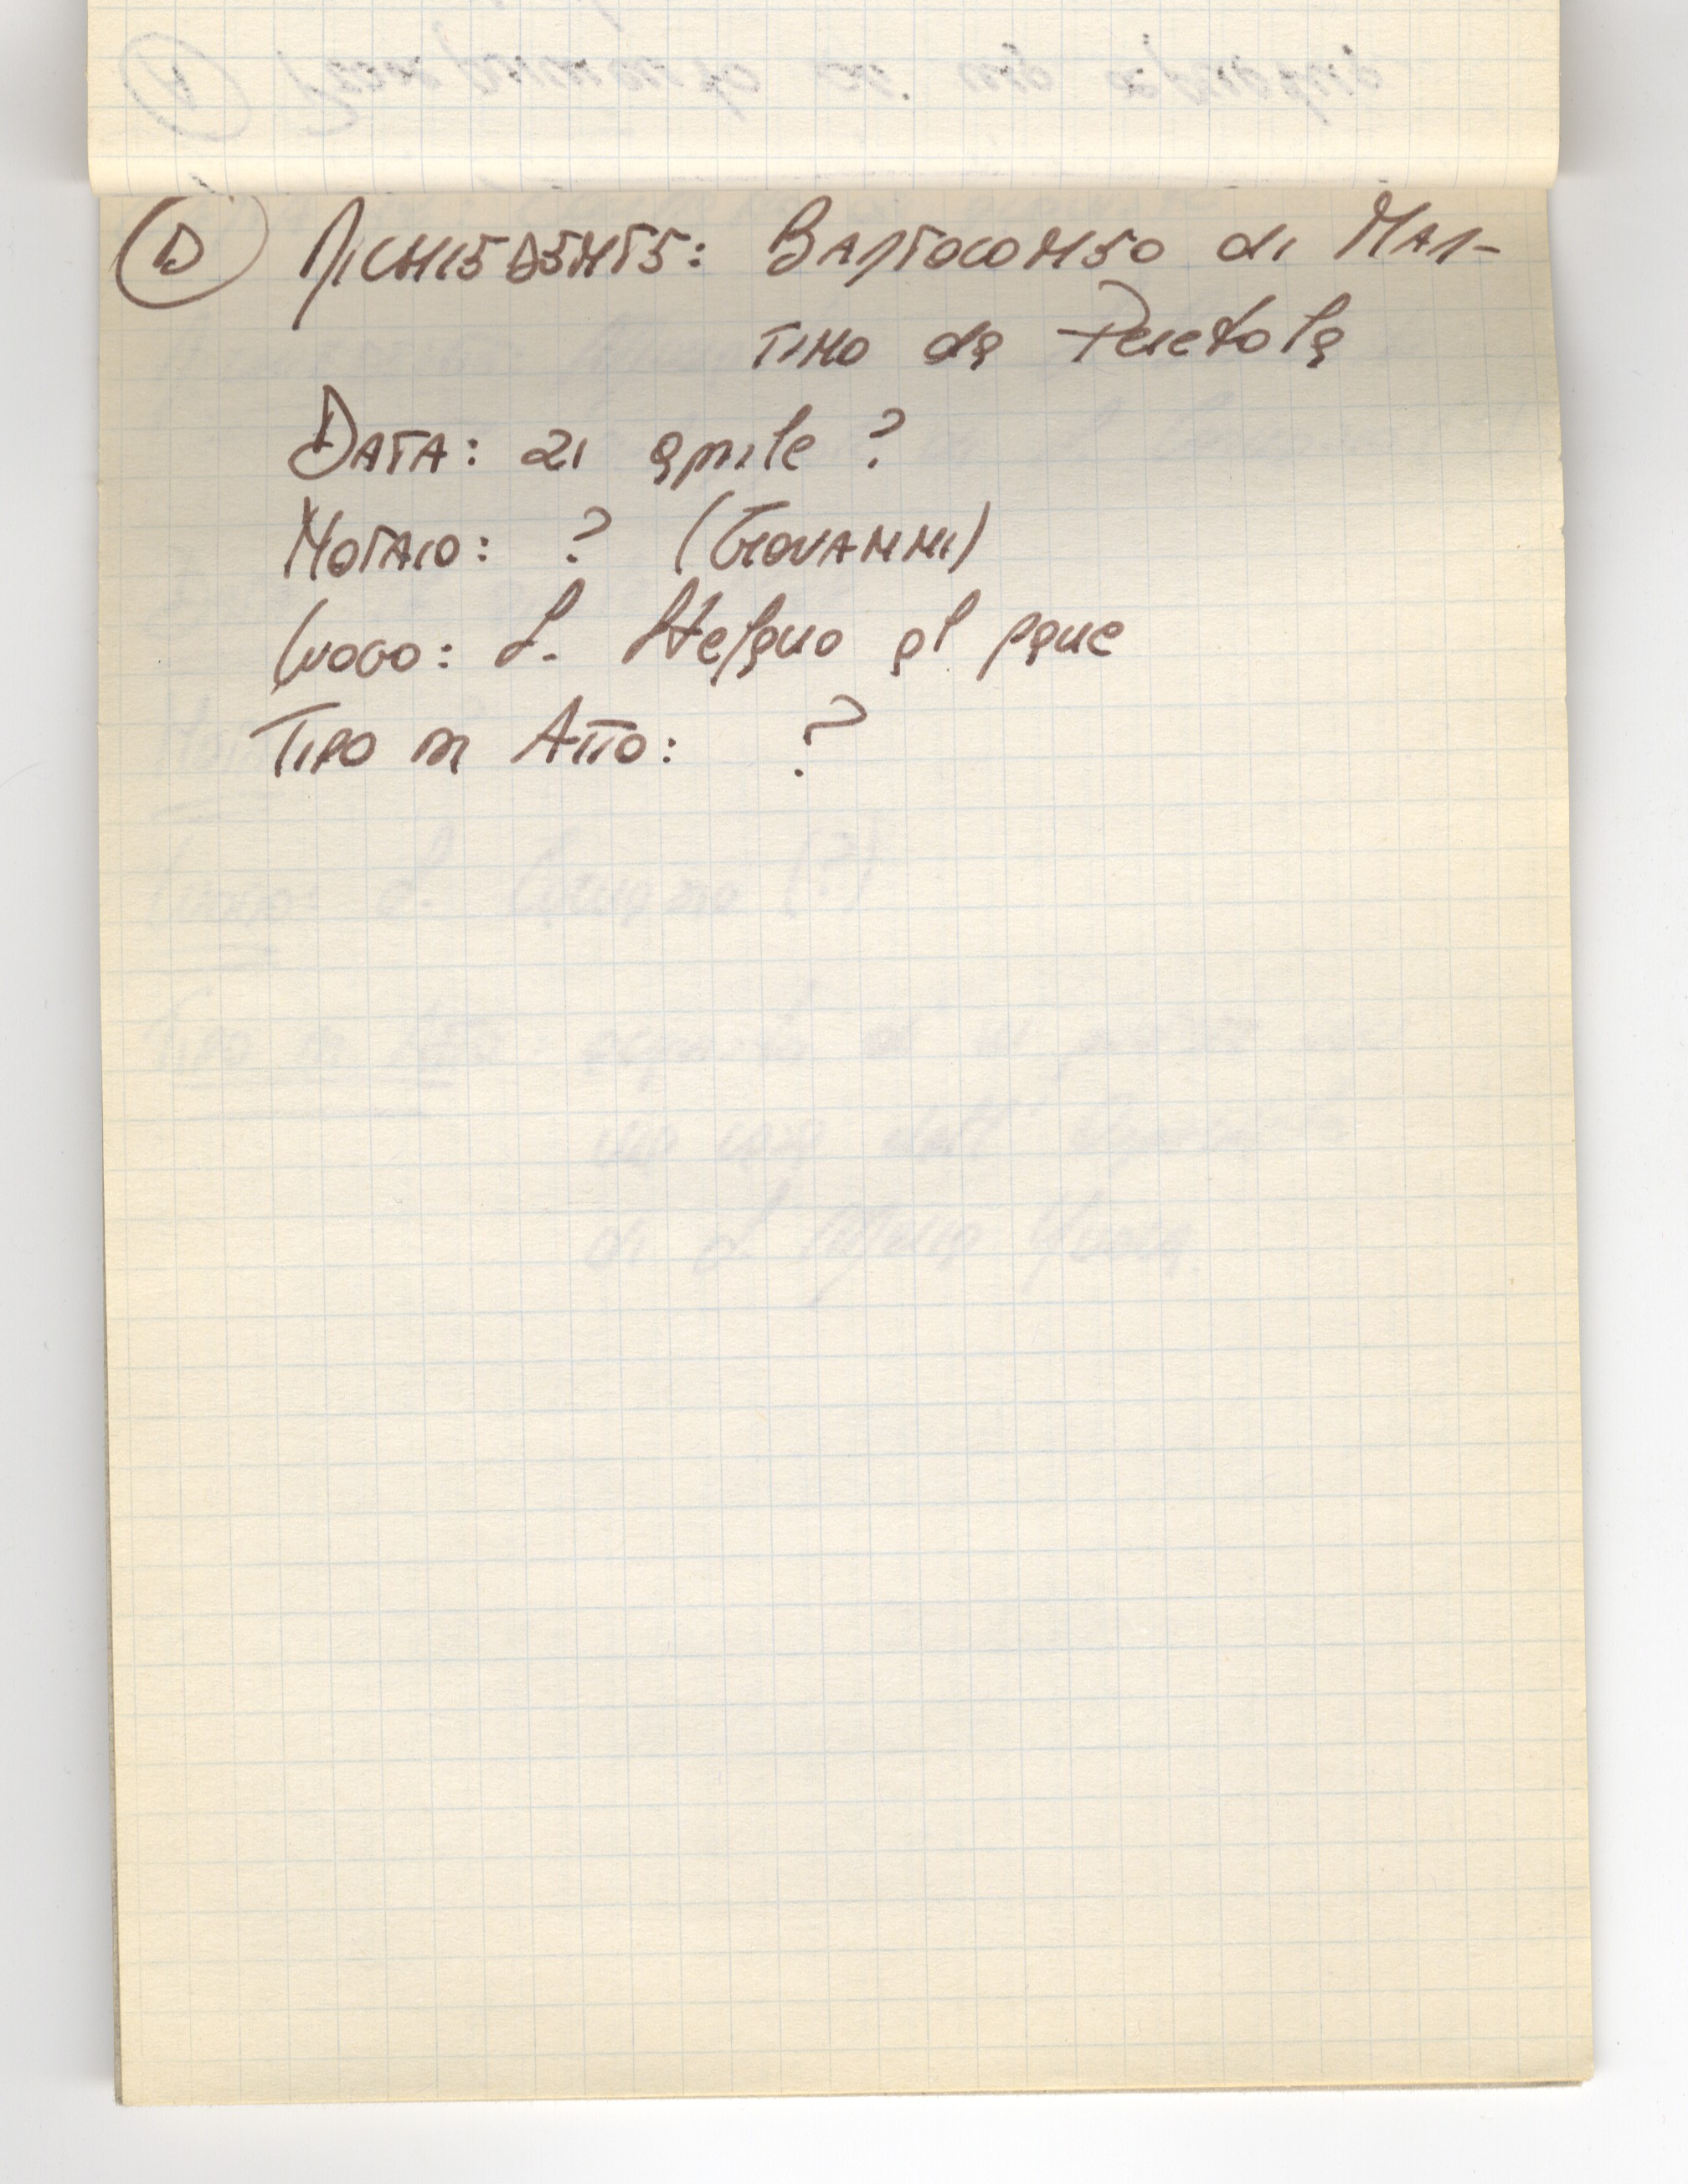 D RICHIEDENTE: BARTOLOMEO di MAR-
TINO da Peretola
DATA: 21 aprile ?
NOTAIO: ? (GIOVANNI)
LUOGO: S. Stefano al pane
TIPO DI ATTO: ?